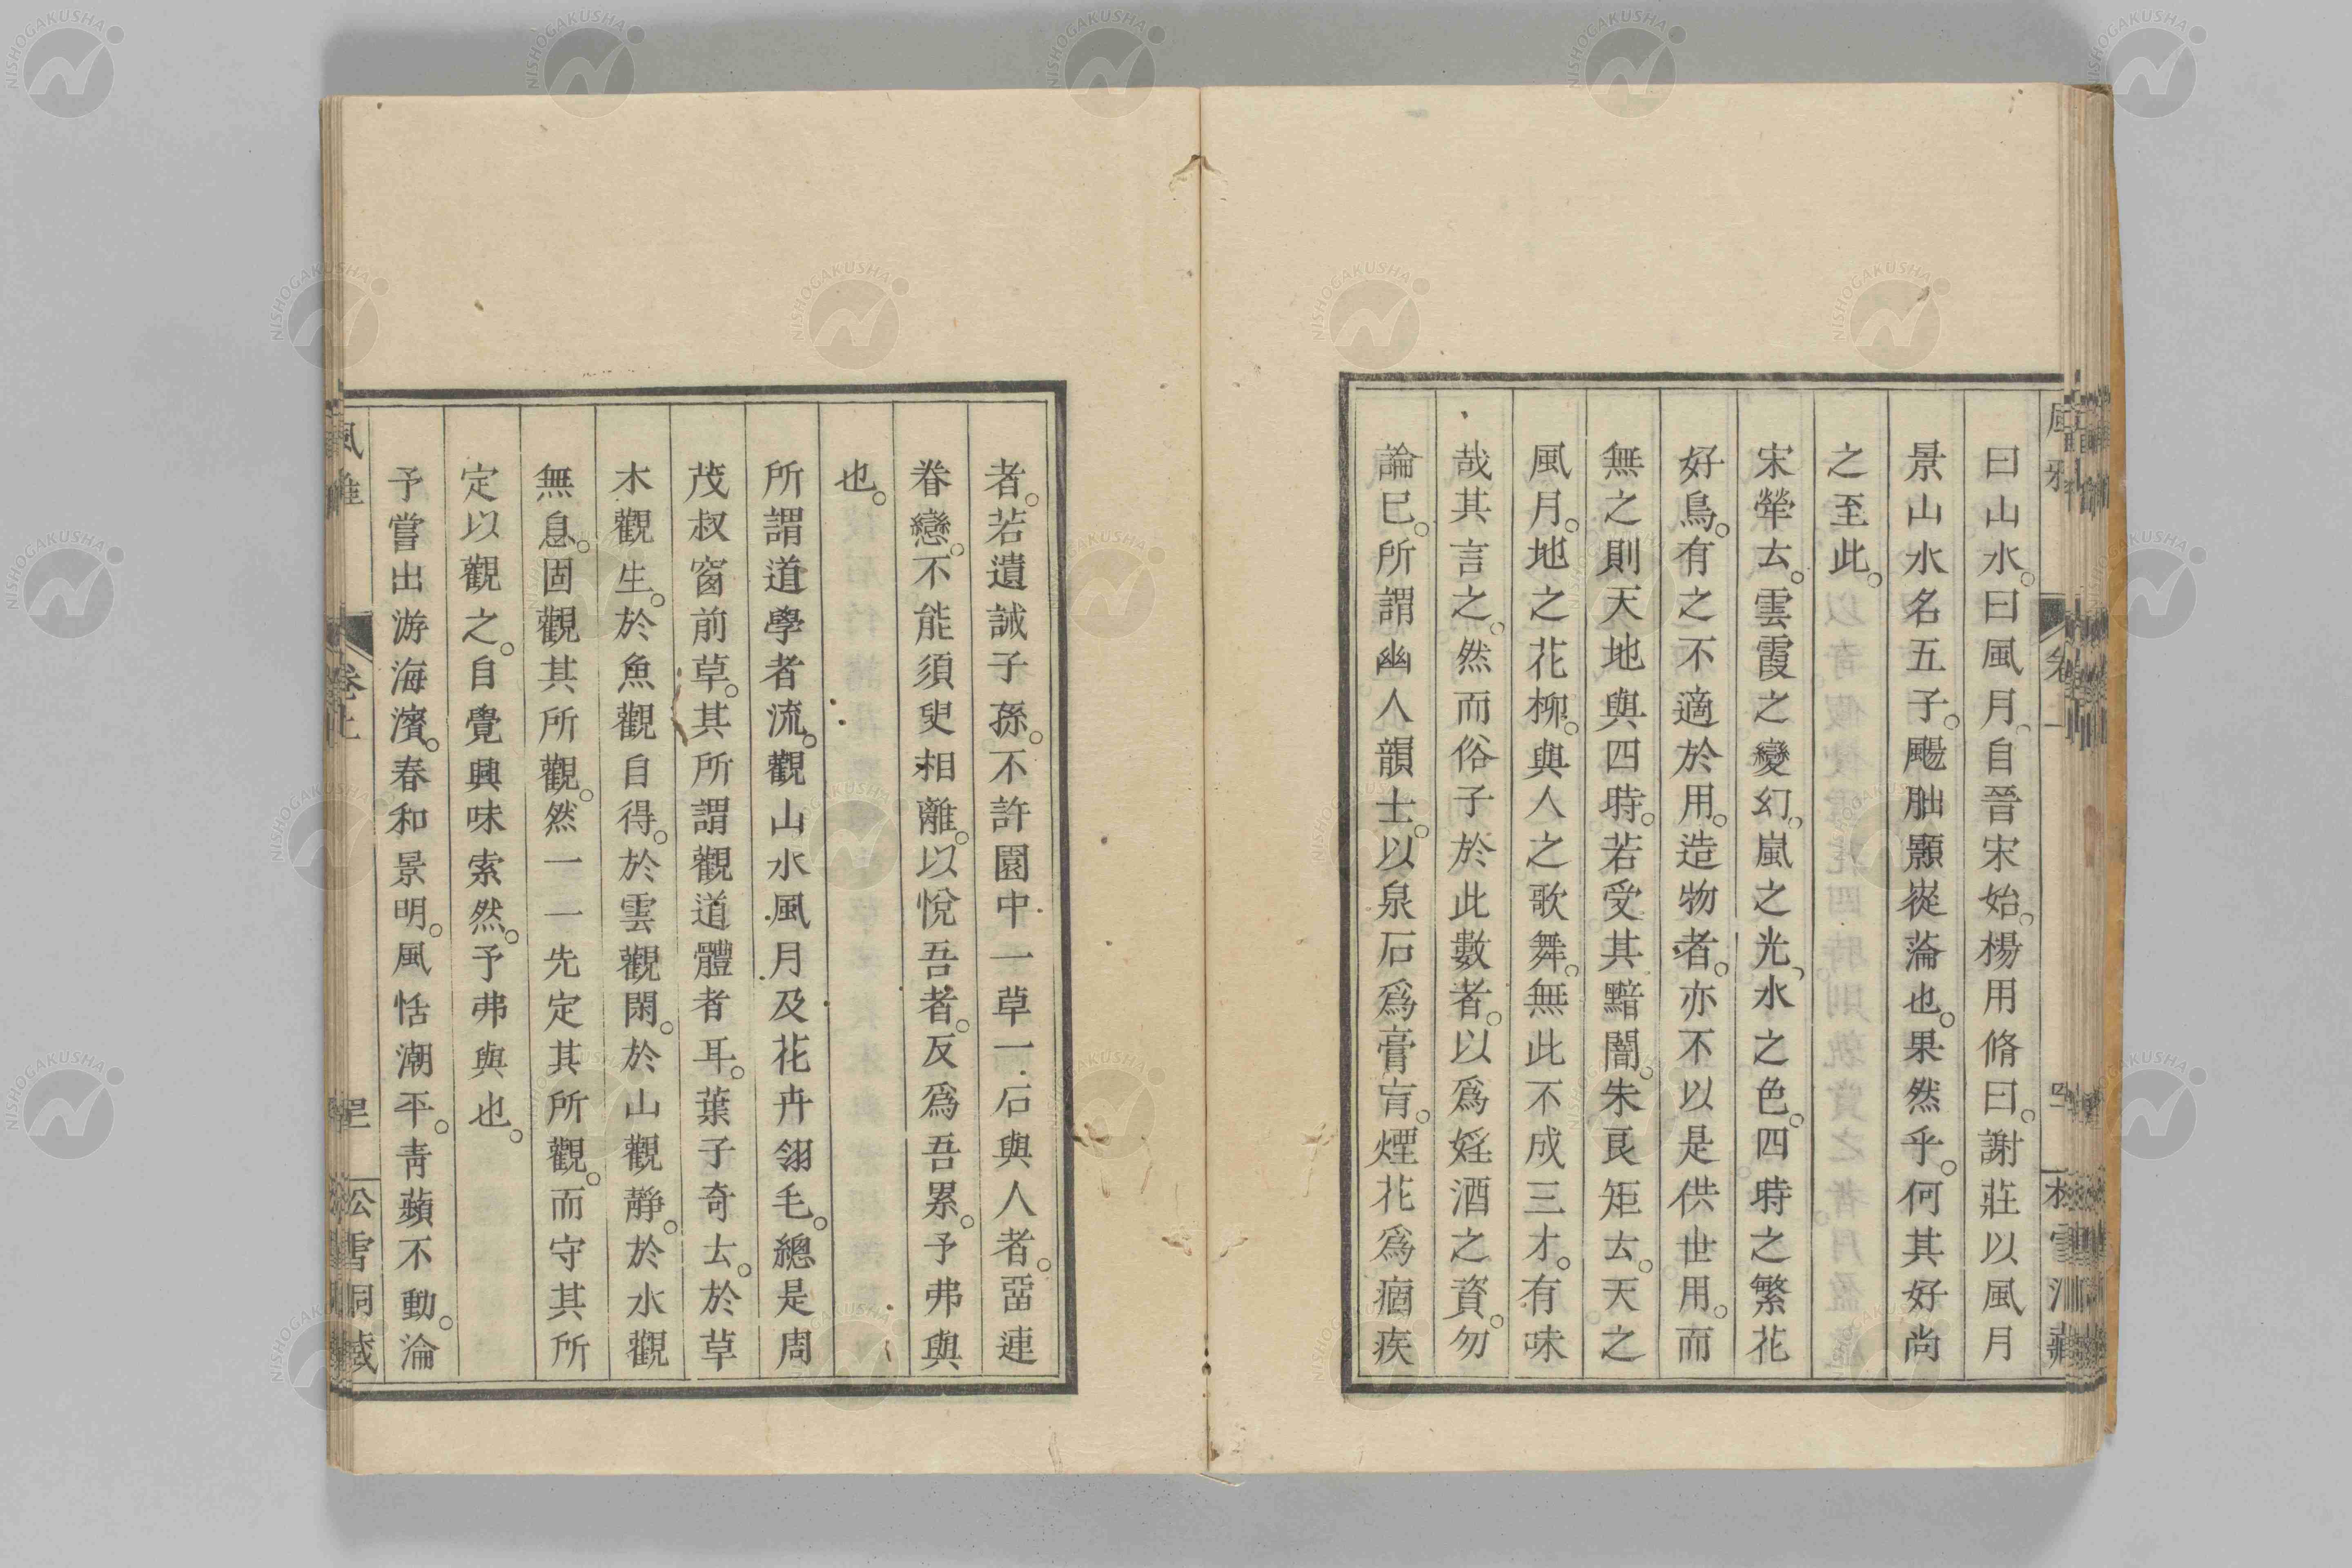 曰山水。曰風月。自晉宋始。楊用脩曰。謝莊以風月
景山水名五子。颺朏顥嵸蕍也。果然乎。何其好尚
之至此。
宋犖云。雲霞之變幻。嵐之光、水之色。四時之繁花
好鳥。有之不適於用。造物者。亦不以是供世用。而
無之則天地與四時。若受其黯闇。朱良矩云。天之
風月。地之花柳。與人之歌舞。無此不成三才。有味
哉其言之。然而俗子於此數者。以爲婬酒之資。勿
論已。所謂幽人韻士。以泉石爲膏肓。煙花爲痼疾
者。若遺誡子孫。不許園中一草一石與人者。畱連
眷戀。不能須臾相離。以悅吾者。反爲吾累。予弗與
也。
所謂道學者流。觀山水風月及花卉翎毛。總是周
茂叔窗前草。其所謂觀道體者耳。葉子奇云。於草
木觀生。於魚觀自得。於雲觀閑。於山觀靜。於水觀
無息。固觀其所觀。然一一先定其所觀。而守其所
定以觀之。自覺興味索然。予弗與也。
予嘗出游海濱。春和景明。風恬潮平。靑蘋不動。淪
卷上
松雪洞藏
NISHOGAKUSHA